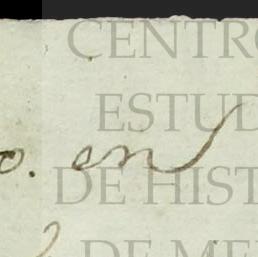 CENTRO
ESTUD
o. en
DE HIST
DE ME